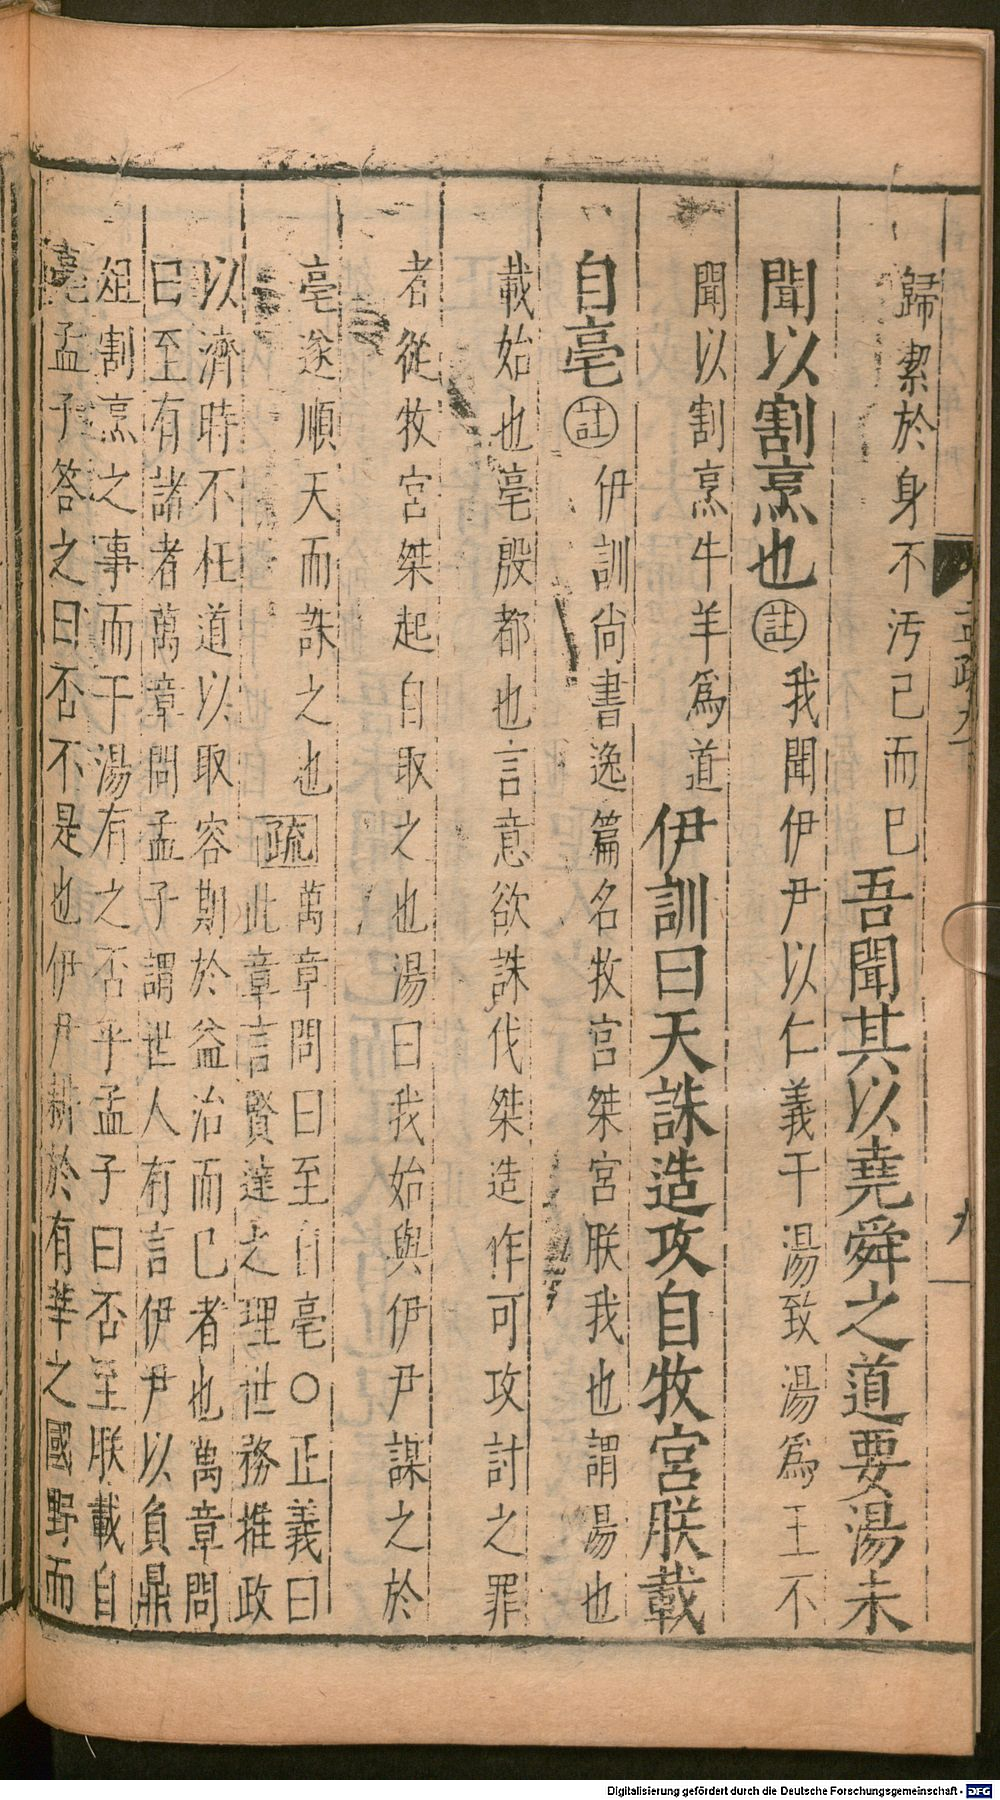 歸絜於身不汚己而已吾聞其以堯舜之道要湯未
聞以割烹也註我聞伊尹以仁義干湯致湯爲王不
聞以割烹牛羊爲道伊訓曰天誅造攻自牧宮朕載
自亳註伊訓尚書逸篇名牧宮桀宮朕我也謂湯也
載始也亳殷都也言意欲誅伐桀造作可攻討之罪
者從牧宮桀起自取之也湯曰我始與伊尹謀之於
亳遂順天而誅之也疏萬章問曰至自亳○正義曰
此章言賢達之理世務推政
以濟時不枉道以取容期於益治而已者也萬章問
曰至有諸者萬章問孟子謂世人有言伊尹以負鼎
俎割烹之事而于湯有之否乎孟子曰否至朕載自
亳孟子答之曰否不是也伊尹耕於有莘之國野而
九
Digitalisierung gefördert durch die Deutsche Forschungsgemeinschaft - DFG